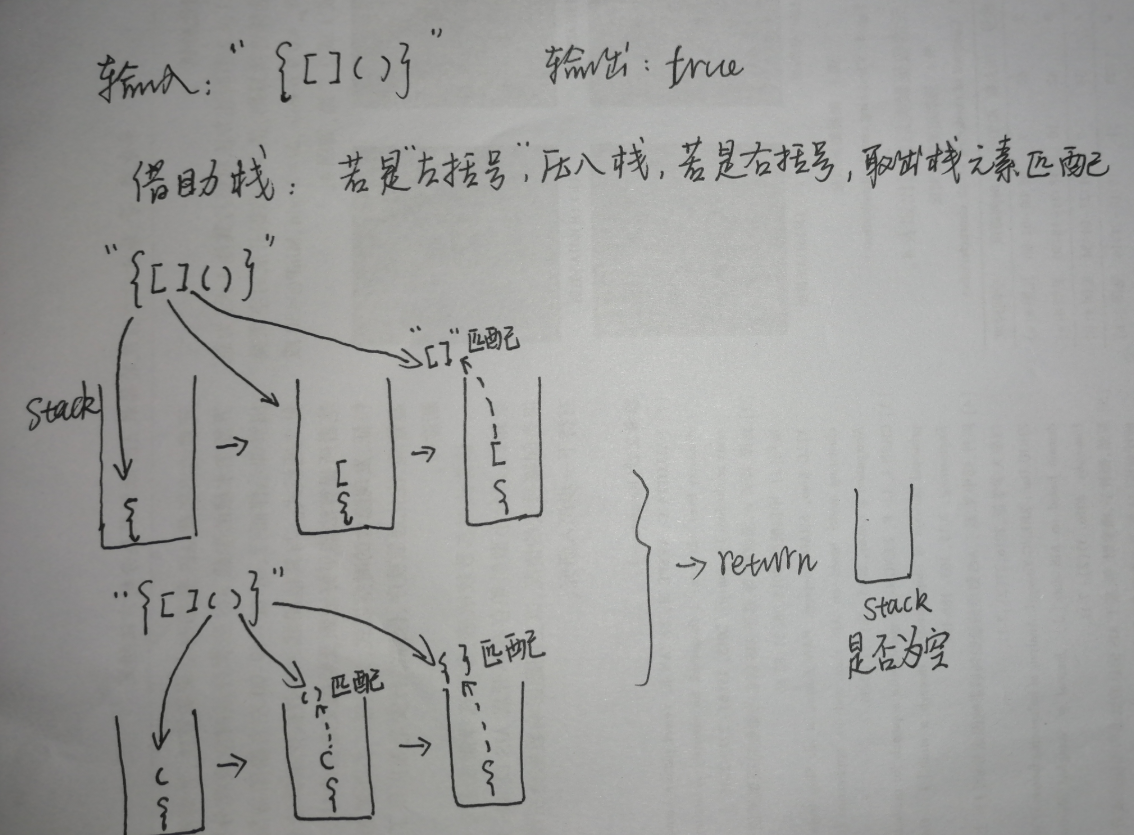 输入：“{[]()}” 输出：true
借助栈：若是“左括号”，压入栈，若是右括号，取出栈元素匹配
“{[]()}”
“[]”匹配
Stack
{
[
{
[
{
“{[]()}”
{}匹配
()匹配
(
{
(
{
{
→ return
Stack
是否为空